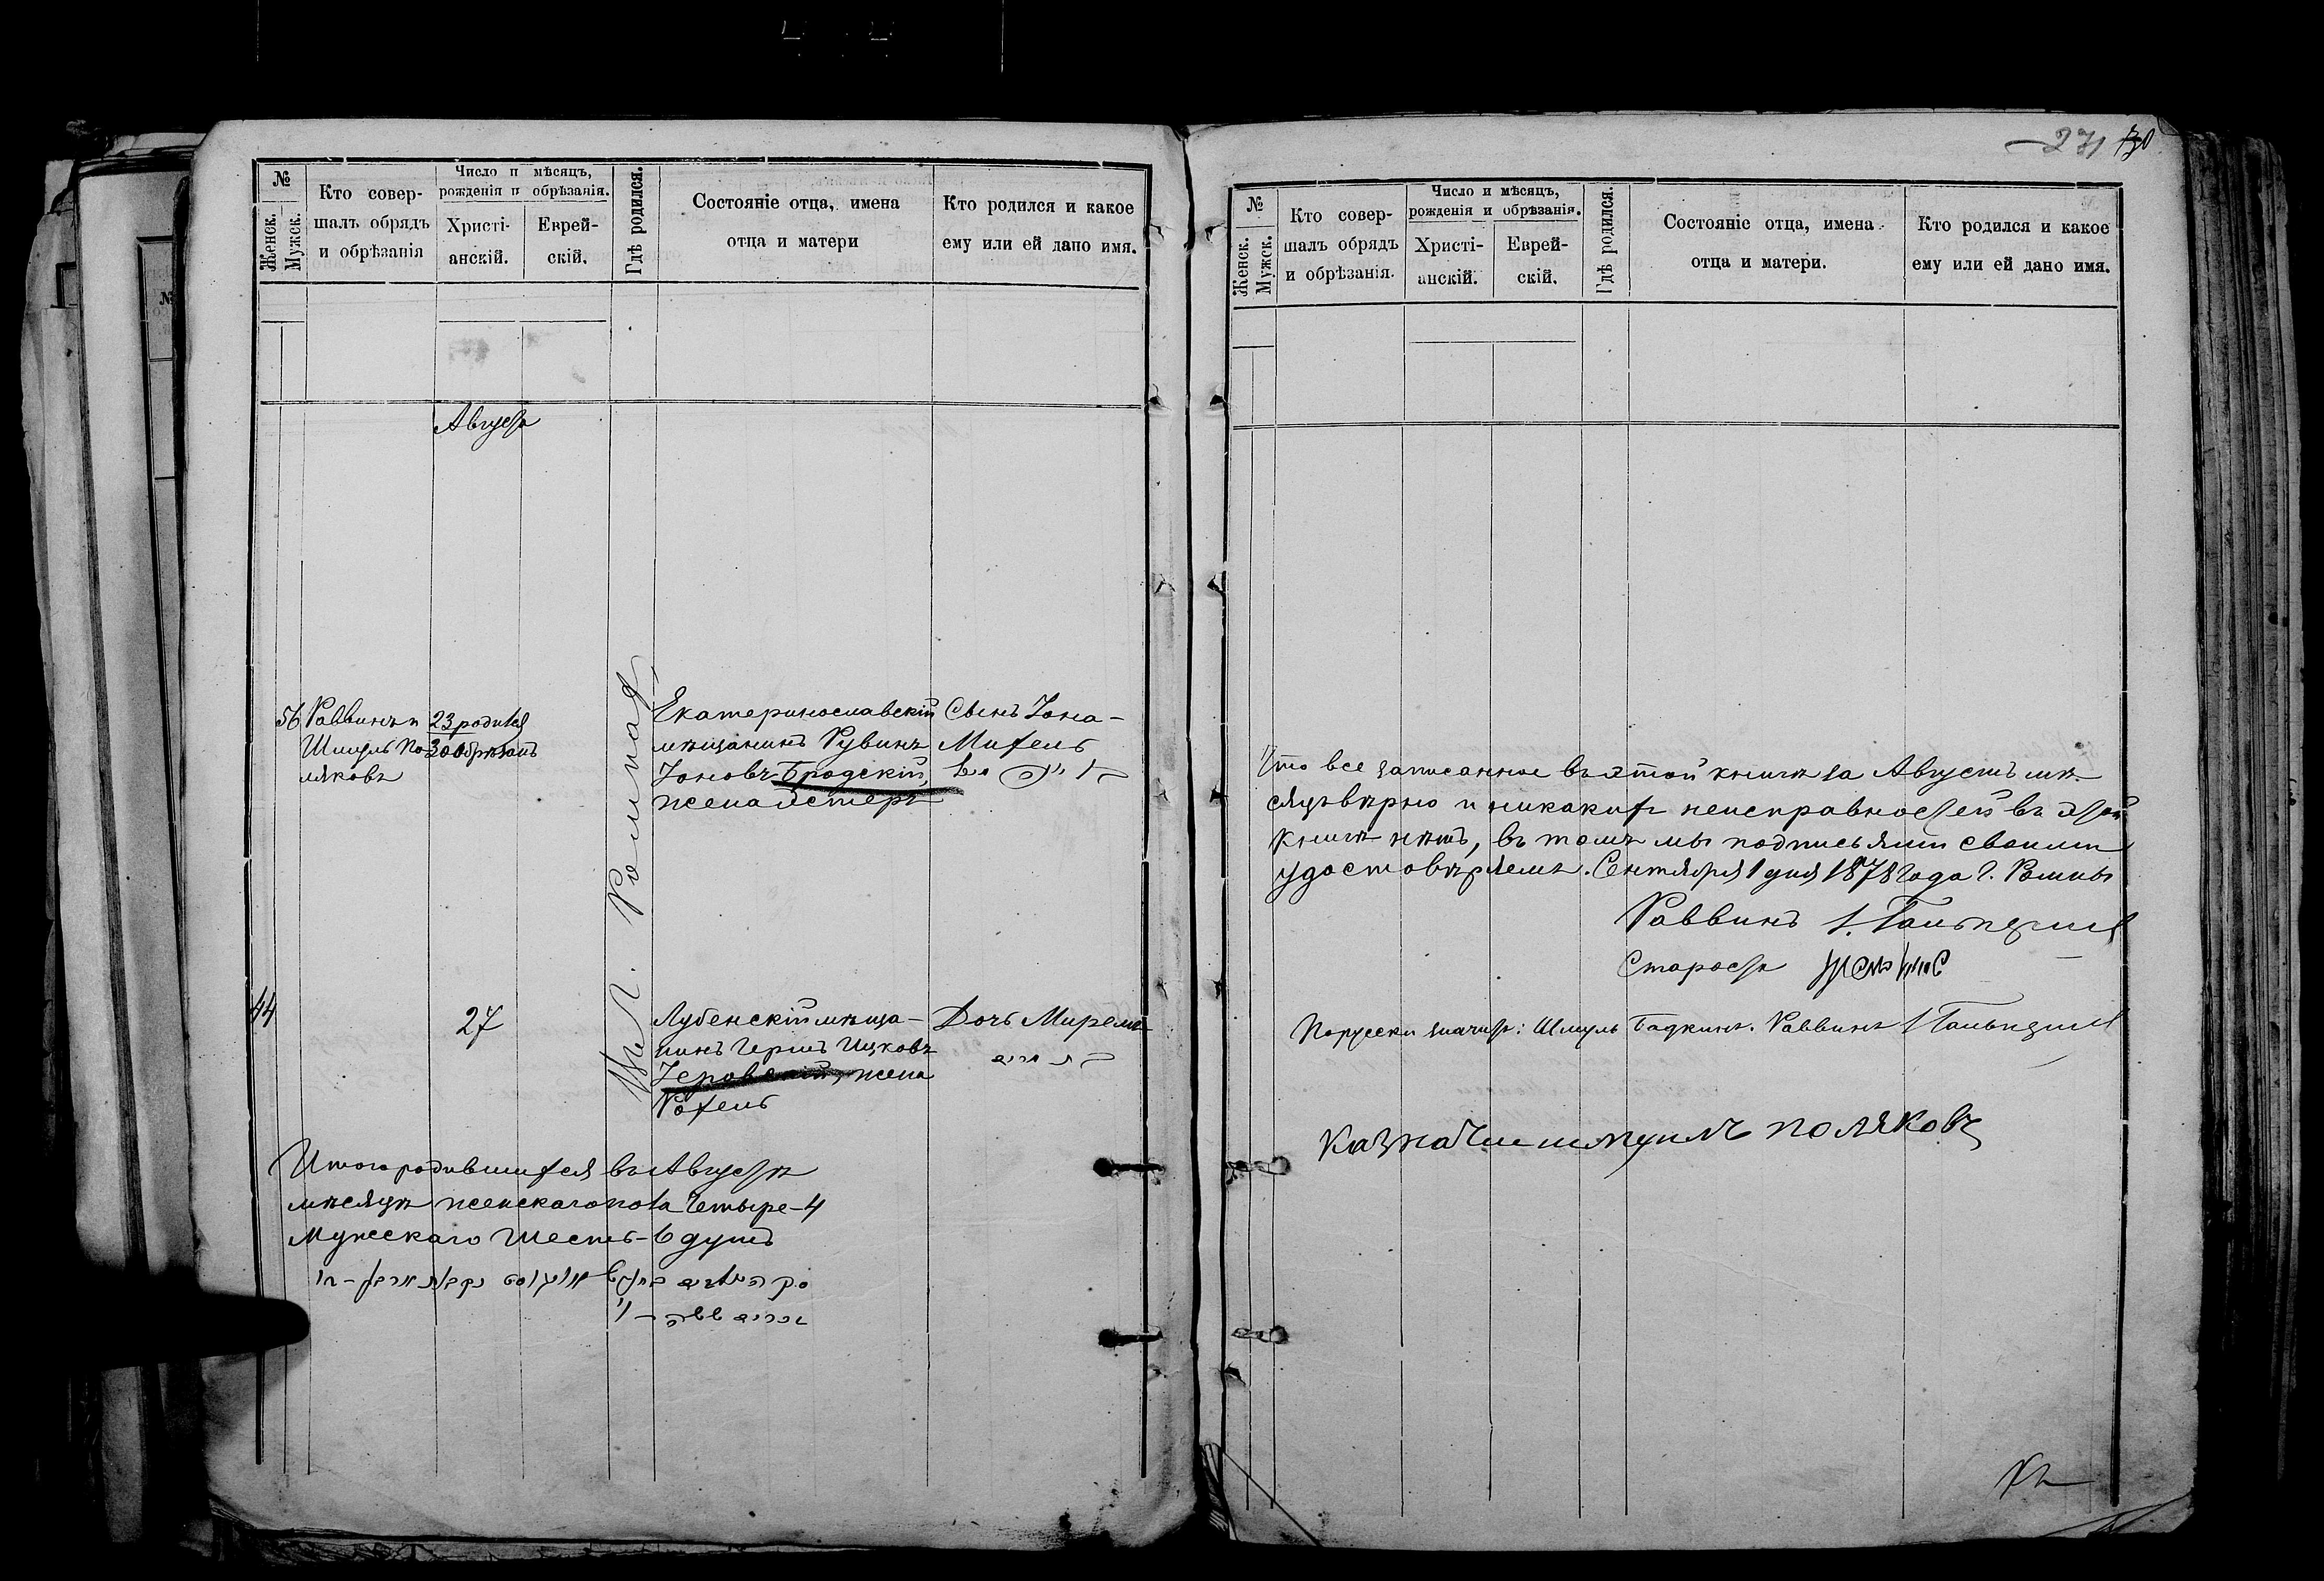 №
Женск.
Мужск.
Кто совер-
шалъ обрядъ
и обрѣзанія
Число и мѣсяцъ,
рожденія и обрѣзанія.
Христі-
анскій.
Еврей-
скій.
Гдѣ родился.
Состояніе отца, имена
отца и матери
Кто родился и какое
ему или ей дано имя.
Августа
56
Раввинъ и
Шмуль По-
ляковъ
23 родился
30 обрѣзанъ
Екатеринославскій
мѣщанинъ Рувинъ
Іоновъ Бродскій,
жена Эстеръ
Сынъ Іона-
Михель
44
27
Лубенскій мѣща-
нинъ Гершъ Ицковъ
жена
Рохель
Дочь
Итого родившихся въ Августѣ
мѣсяцѣ женскаго пола Четыре-4
Мужскаго Шесть-6 душъ
271
№
Женск.
Мужск.
Кто совер-
шалъ обрядъ
и обрѣзанія.
Число и мѣсяцъ,
рожденія и обрѣзанія.
Христі-
анскій.
Еврей-
скій.
Гдѣ родился.
Состояніе отца, имена
отца и матери.
Кто родился и какое
ему или ей дано имя.
Что все записанное въ этой книгѣ за Августъ мѣ-
сяцъ вѣрно и никакихъ неисправностей въ этой
книгѣ нѣтъ, въ томъ мы подписями своими
удостовѣряемъ. Сентября 1 дня 1878 года г. Ромны
Раввинъ
Староста
По русски значитъ: Шмуль Раввинъ
Казначие шмуилъ поляковъ